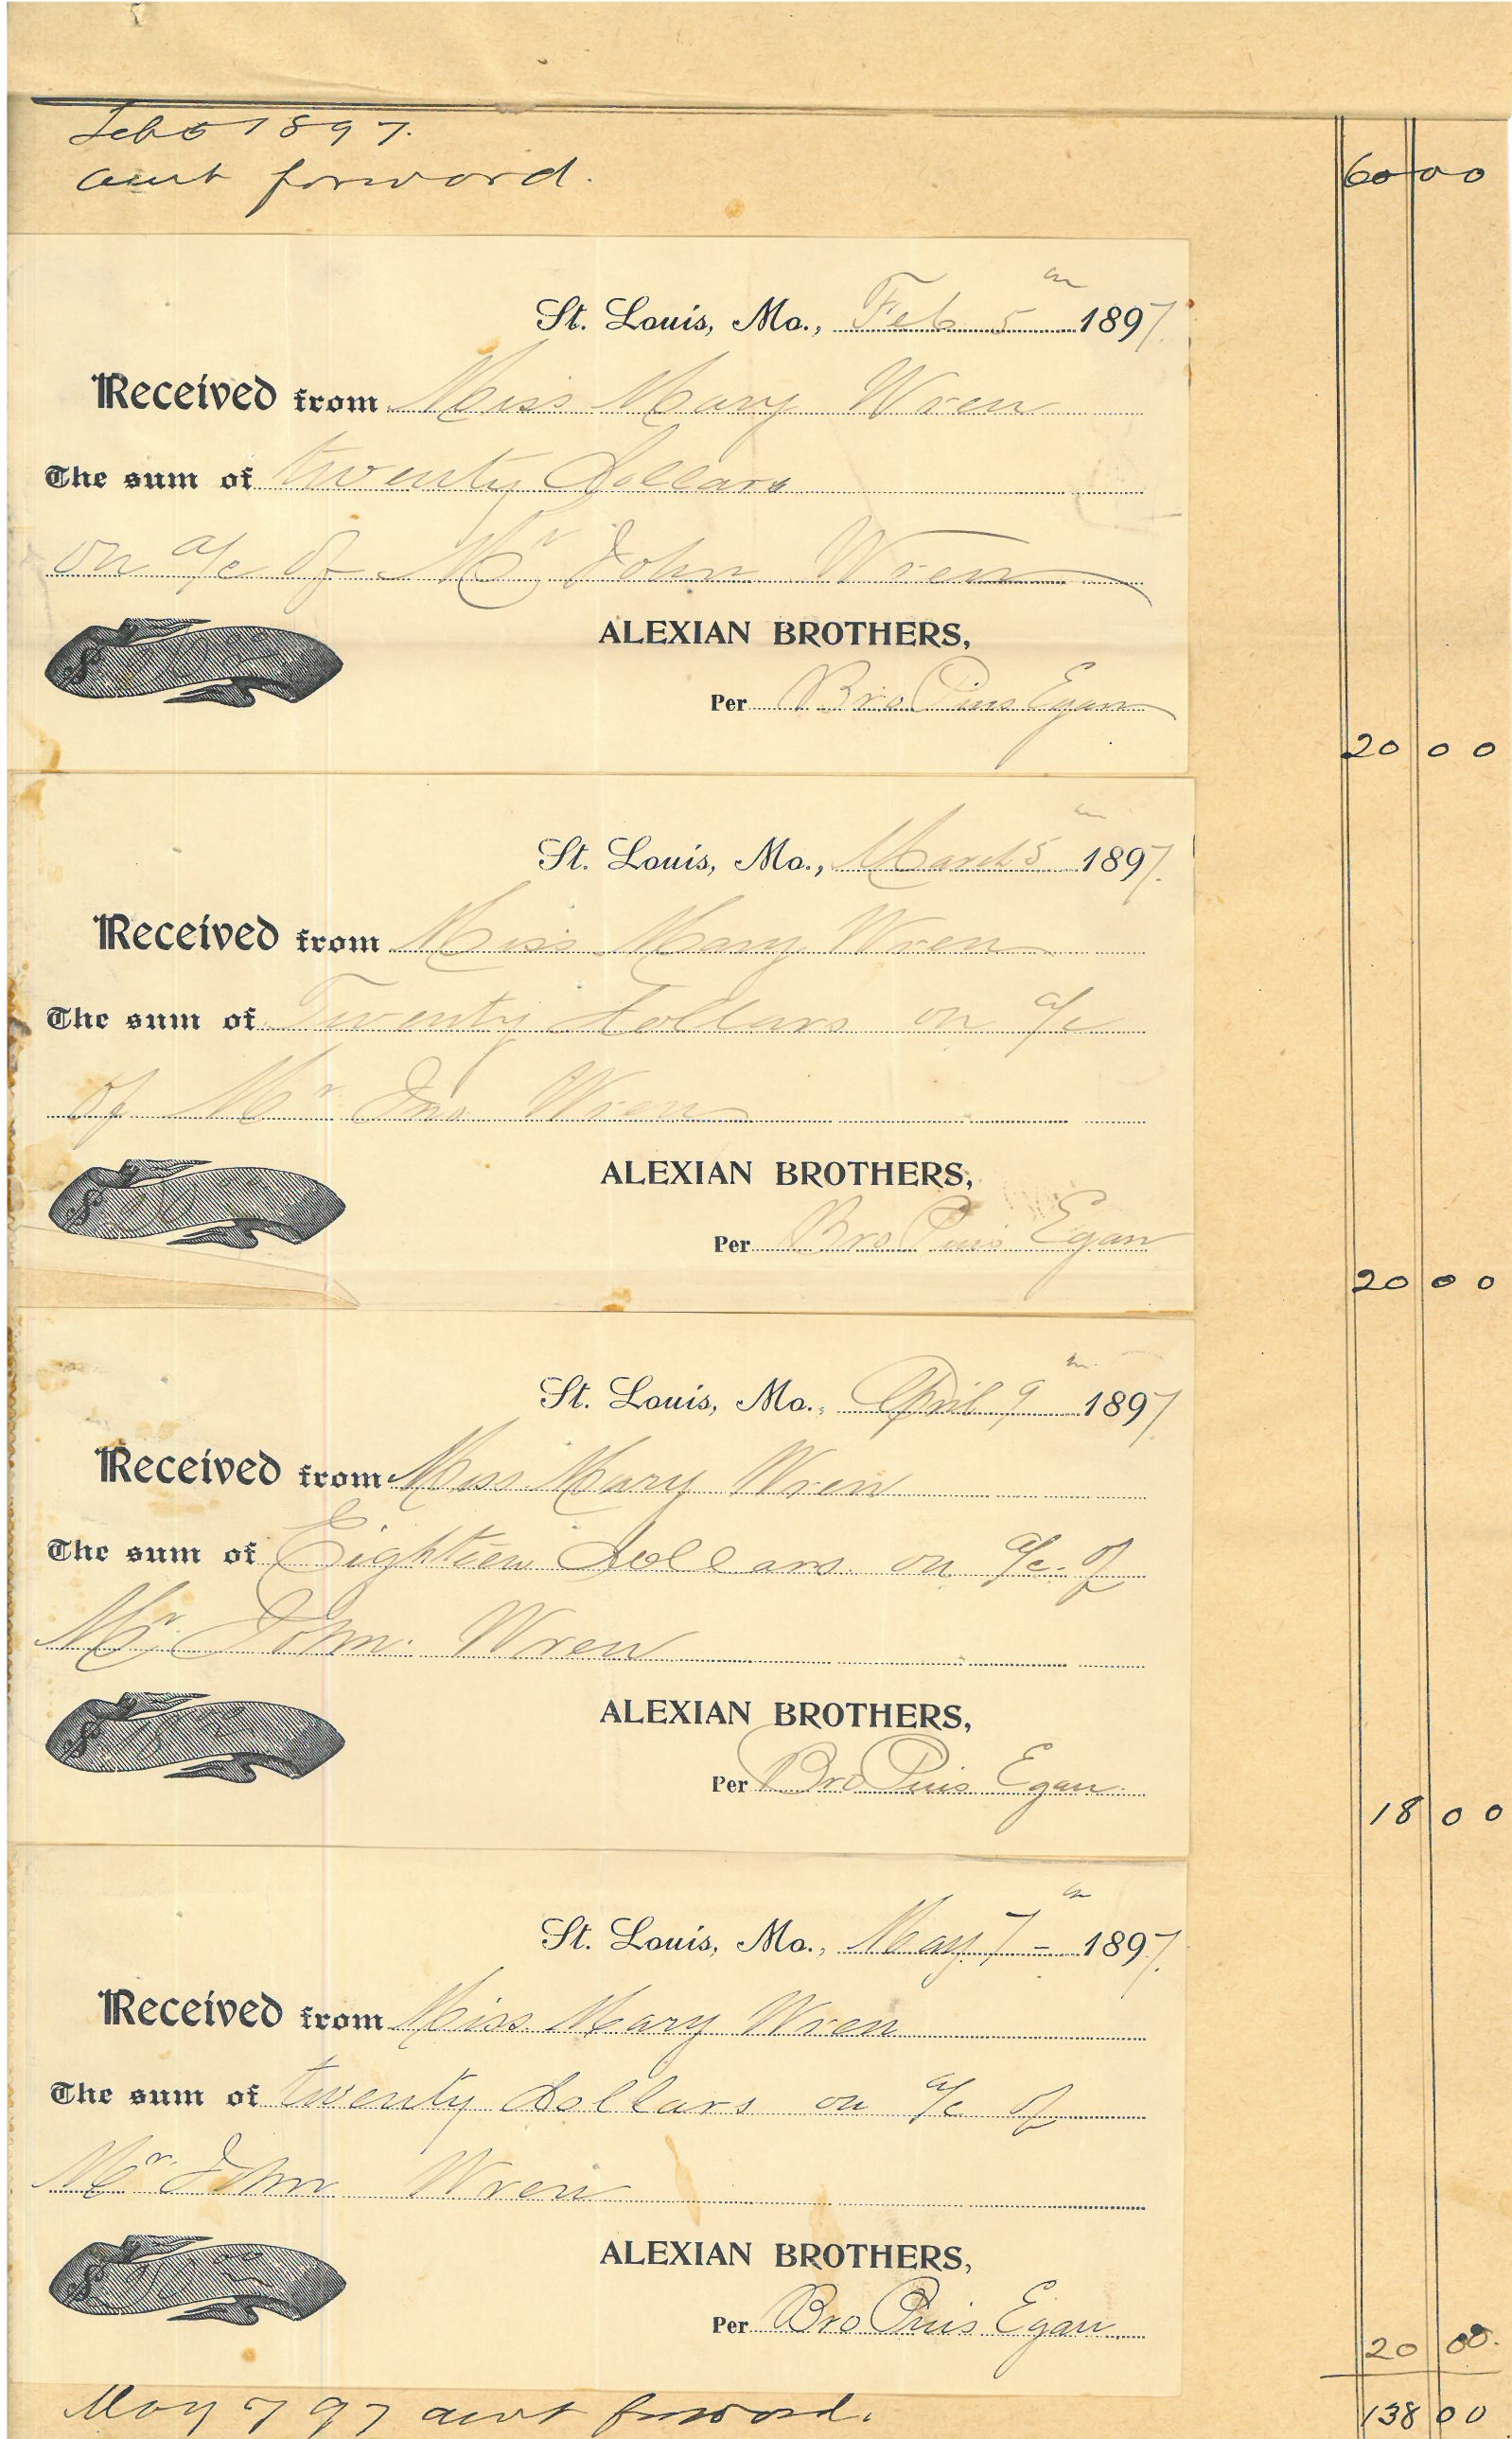 Feb 5 1897.
amt forward. 60 00
St. Louis, Mo., Feb 5th 1897.
Received from Miss Mary Wren
The sum of twenty Dollars
on a/c of Mr John Wren
ALEXIAN BROTHERS,
$ 20.00
Per Bro Pius Egan
20 00
St. Louis, Mo., March 5th 1897.
Received from Miss Mary Wren
The sum of Twenty Dollars on a/c
of Mr Jno Wren
ALEXIAN BROTHERS,
$ 20
Per Bro Pius Egan
20 00
St. Louis, Mo., April 9th 1897.
Received from Miss Mary Wren
The sum of Eighteen Dollars on a/c of
Mr John Wren
ALEXIAN BROTHERS,
$ 18.00
Per Bro Pius Egan.
18 00
St. Louis, Mo., May 7th 1897.
Received from Miss Mary Wren
The sum of twenty dollars on a/c of
Mr John Wren
ALEXIAN BROTHERS,
$ 20.00
Per Bro Pius Egan
20 00.
May 7 97 amt forward. 138 00